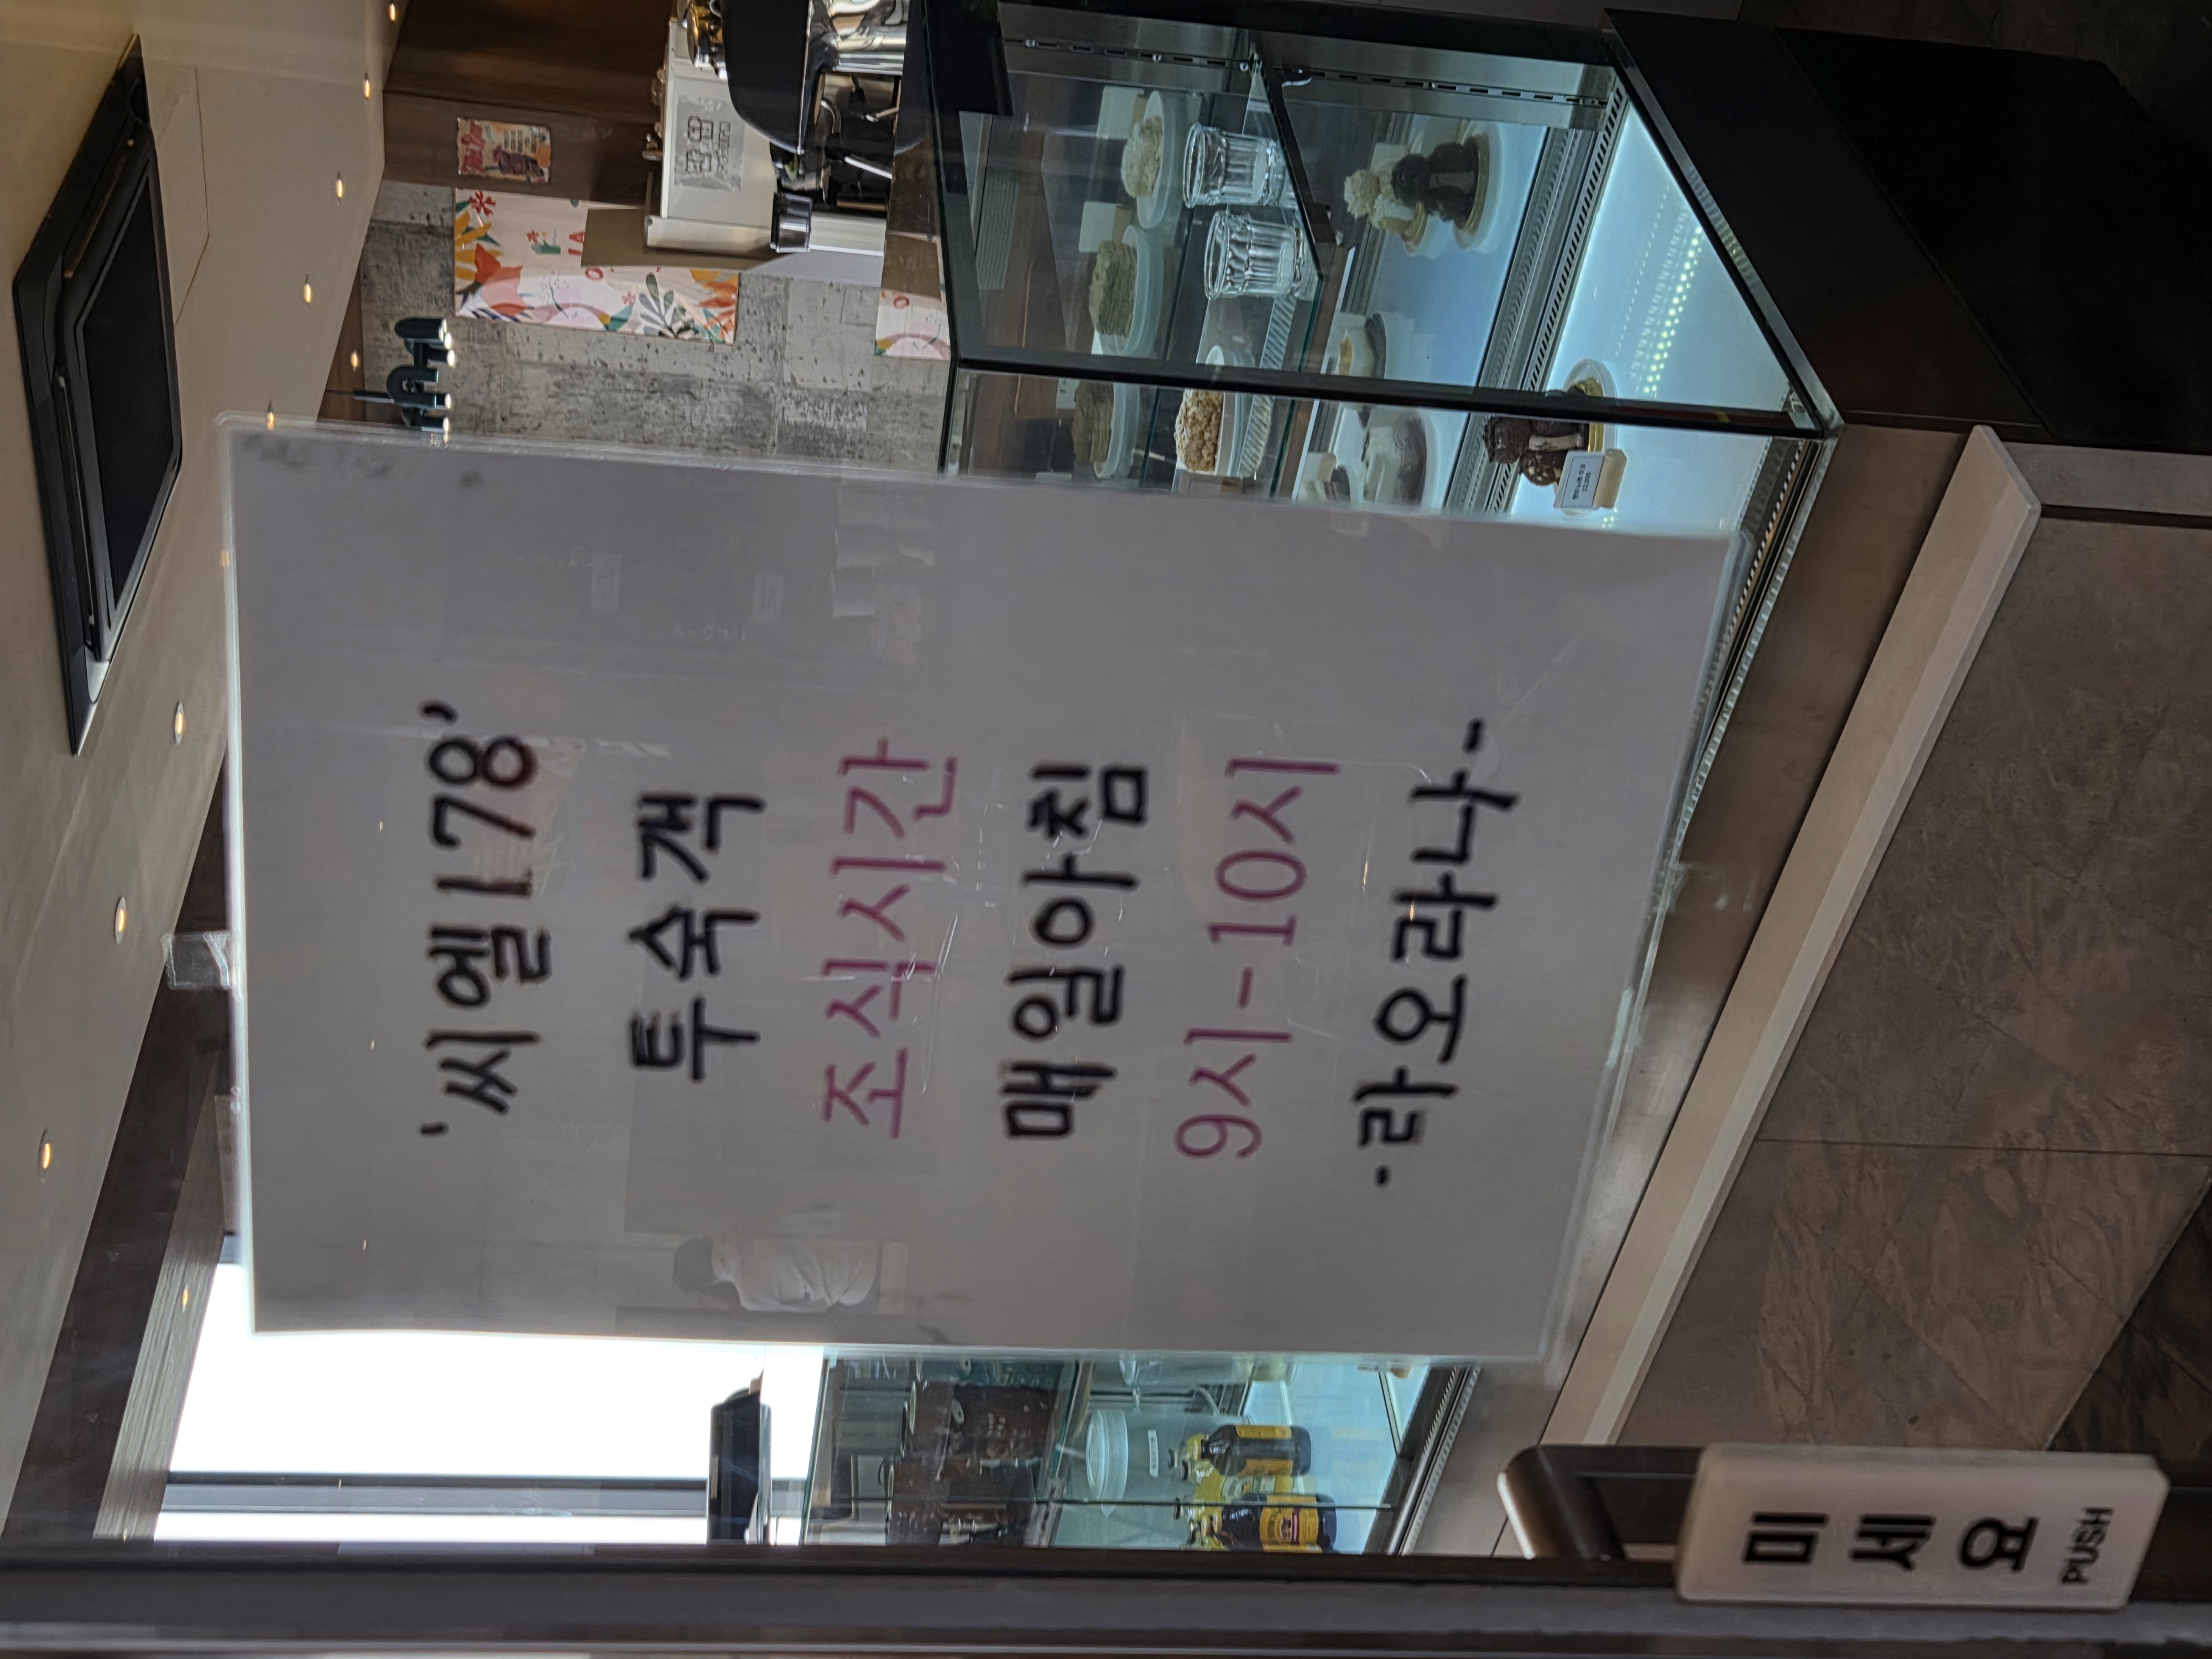 '씨엘178'
투숙객
조식시간
매일아침
9시-10시
-라오라나-
미
세
요
PUSH